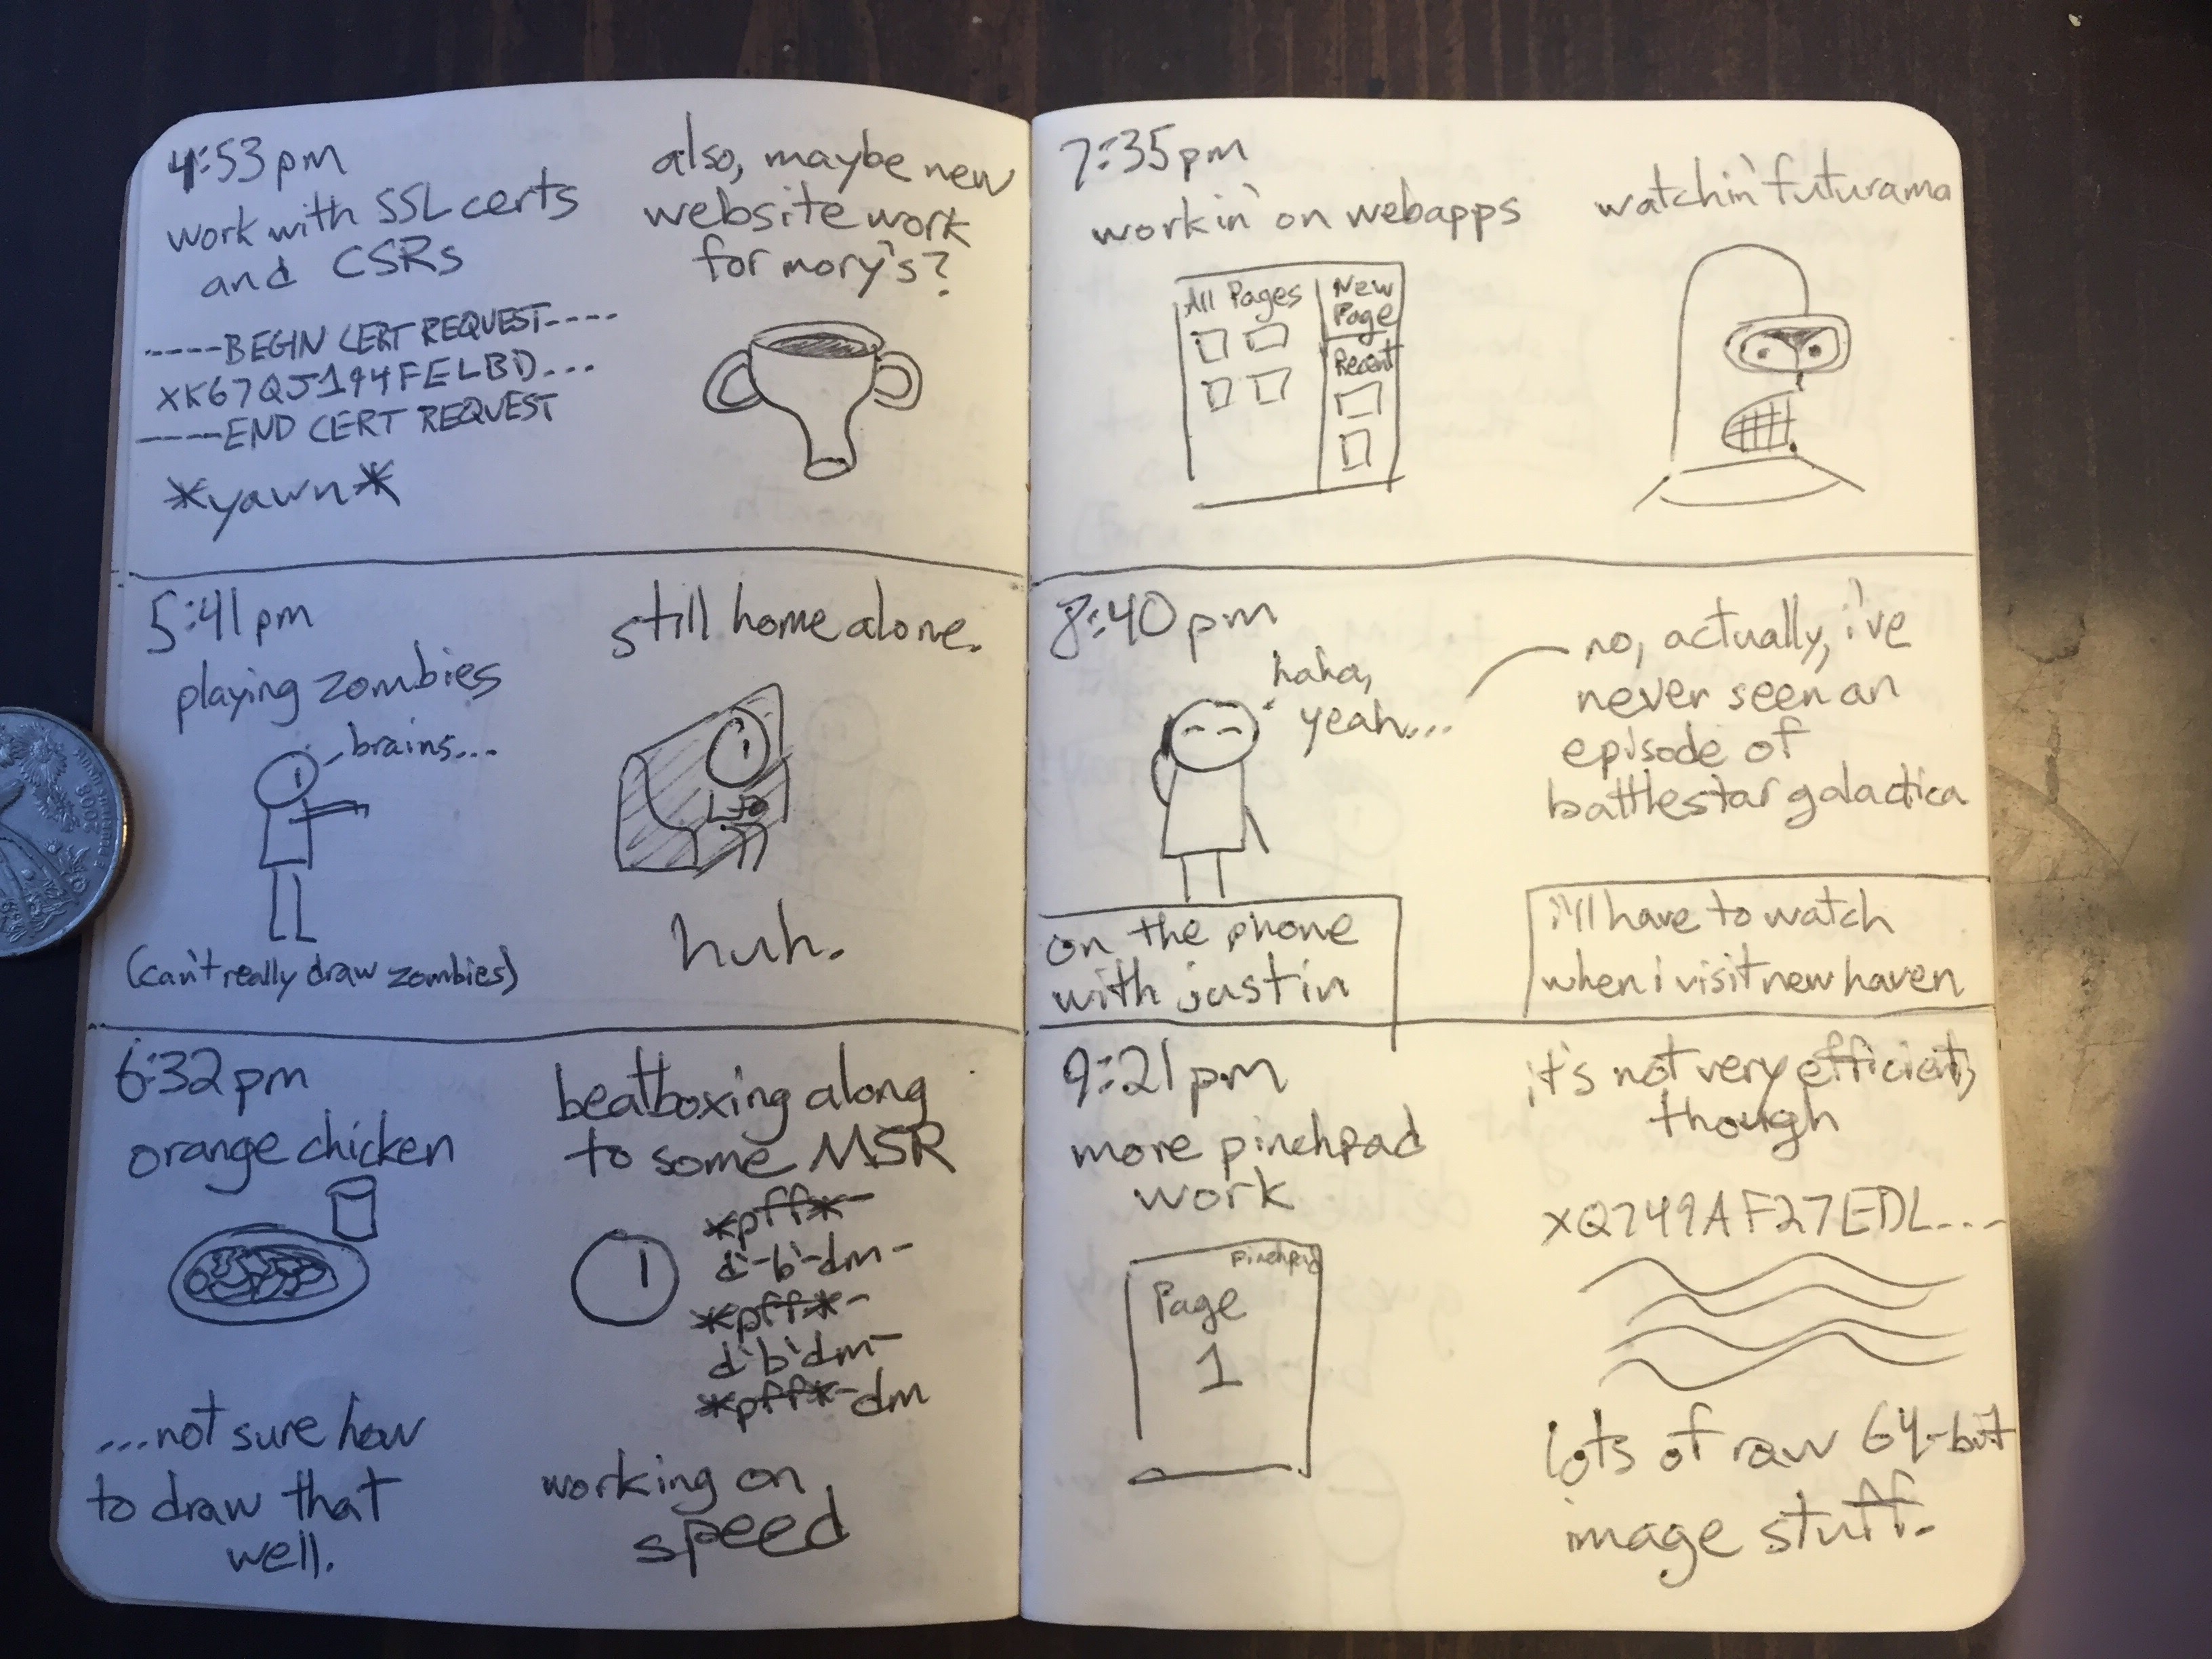 4:53pm
work with SSL certs
and CSRs
----BEGIN CERT REQUEST----
XK67QJ194FELBD...
----END CERT REQUEST
*yawn*
also, maybe new
website work
for mory's?
5:41pm
playing zombies
brains...
(can't really draw zombies)
still home alone.
huh.
6:32pm
orange chicken
...not sure how
to draw that
well.
beatboxing along
to some MSR
*pff*-
d'-b'-dm-
*pff*-
d'b'dm-
*pff*-dm
working on
speed
7:35pm
workin' on webapps
All Pages
New
Page
Recent
watchin' futurama
8:40pm
haha,
yeah...
on the phone
with justin
no, actually, i've
never seen an
episode of
battlestar galactica
i'll have to watch
when i visit new haven
9:21pm
more pinchpad
work
pinchpad
Page
1
it's not very efficient,
though
XQ749AF27EDL...
lots of raw 64-bit
image stuff.